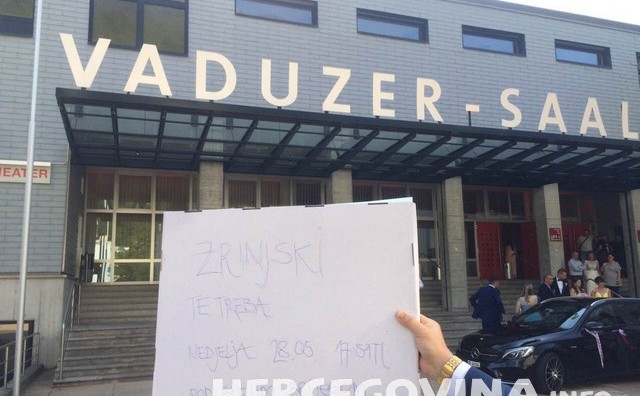 VADUZER-SAAL
EATER
ZRINJSKI
TE TREBA
NEDJELJA 28.05 17 SATI
HERCEGOVINA.INFO